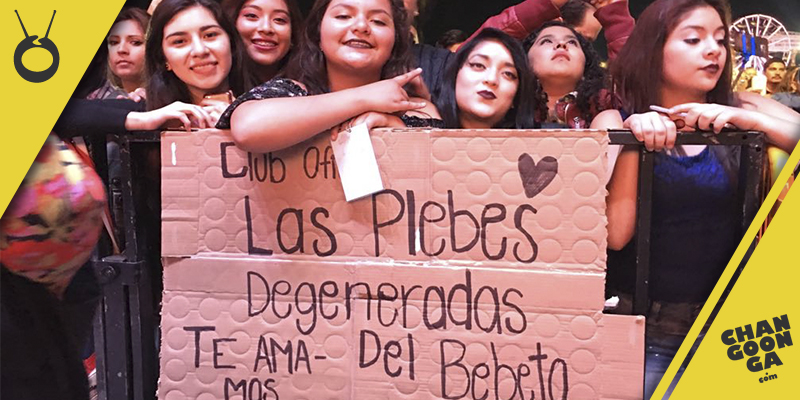 Club Ofi
Las Plebes
Degeneradas
Del Bebeto
TE AMA-
MOS
CHAN
GOON
GA
.com